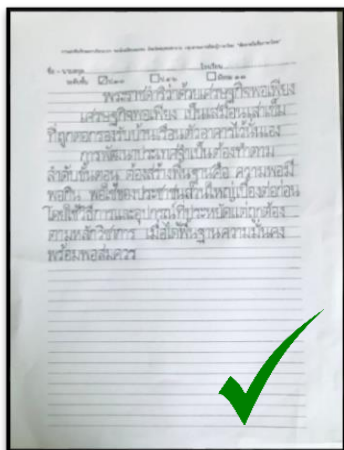 ชื่อ - นามสกุล โรงเรียน
ระดับชั้น
พระราชดำริว่าด้วยเศรษฐกิจพอเพียง
เศรษฐกิจพอเพียง เป็นเสมือนเสาเข็ม
ที่ถูกตอกรองรับบ้านเรือนตัวอาคารไว้นั่นเอง
การพัฒนาประเทศจำเป็นต้องทำตาม
ลำดับขั้นตอน ต้องสร้างพื้นฐานคือ ความพอมี
พอกิน พอใช้ของประชาชนส่วนใหญ่เบื้องต้นก่อน
โดยใช้วิธีการและอุปกรณ์ที่ประหยัดแต่ถูกต้อง
ตามหลักวิชาการ เมื่อได้พื้นฐานความมั่นคง
พร้อมพอสมควร